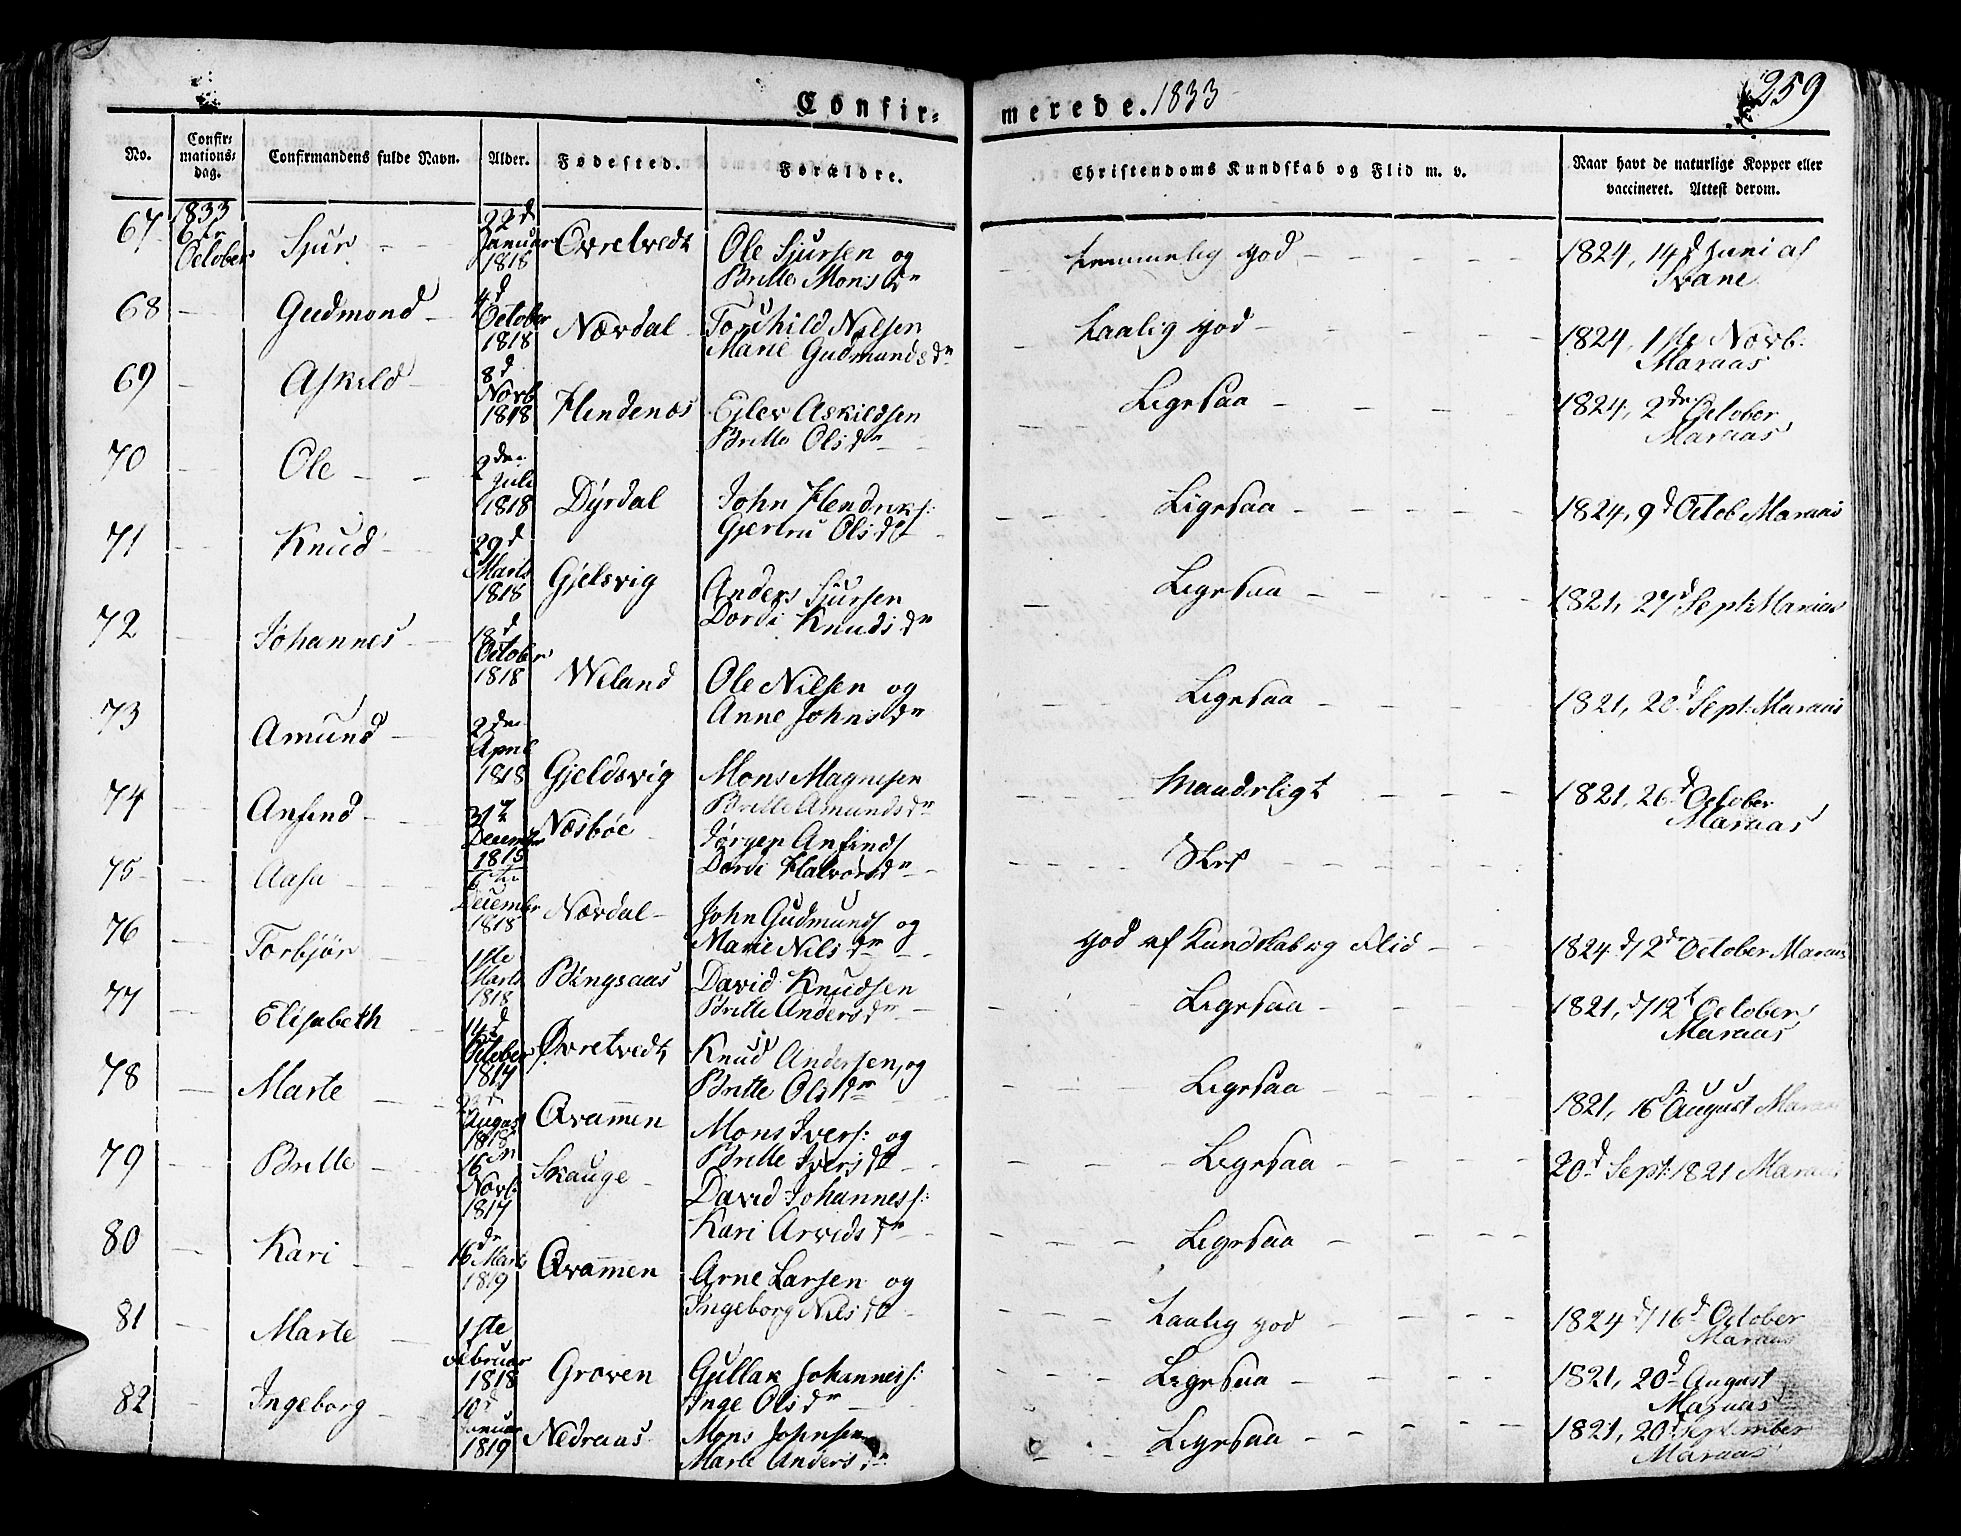 Confirmerede. 1833
259
No. Confirmationsdag. Confirmandens fulde Navn. Alder. Fødested. Forældre. Christendoms Kundskab og Flid m. v. Naar havt de naturlige Kopper eller vaccineret. Attest derom.
67 1833 October Sjur 22d Januar 1818 Ovretvedt Ole Sjursen og Britte Monsdr god 1824, 14d Juni af Svane
68 Gudmond 4d October 1818 Nævdal Torchild Nilsen Marie Gudmundsdr Taalig god 1824, 1ste Novb. Maraas
69 Askild 8d Novb 1818 Hendenæs Ejlev Askildsen Britte Olsdr Ligesaa 1824, 2den October Maraas
70 Ole 2den Juli 1818 Dyrdal John Hendriks: Gjertru Olsdr Ligesaa 1824, 9d Octob Maraas
71 Knud 29d Marts 1818 Gjelsvig Anders Sjursen Dordi Knudsdr Ligesaa 1821, 27d Sept: Maraas
72 Johannes 18d October 1818 Weland Ole Nilsen og Anne Johnsdr Ligesaa 1821, 20d Sept: Maraas
73 Amund 2den April 1818 Gjeldsvig Mons Magnesen Britte Amundsdr Maadeligt 1821, 26d October Maraas
74 Anfind 31te December Næsbøe Jørgen Anfinds Dordi Halvorsdr
75 Aasa December 1818 Nævdal John Gudmunds og Marie Nilsdr god af Kundskab og Flid 1824 d/12d October Maraas
76 Torbjør 1ste Marts 1818 Bingsaas David Knudsen Britte Andersdr Ligesaa 1821, d/12t October Maraas
77 Elisabeth 14d October 1817 Øvretvedt Knud Andersen, og Britte Olsdr Ligesaa 1821, 16d August Maraas
78 Marte August 1818 Qvammen Mons Ivers: og Britte Iversdr Ligesaa 20d Sept: 1821 Maraas
79 Britte 16 Novb: 1817 Skauge David Johanness: Kari Arvedsdr Ligesaa
80 Kari 16de Marts 1819 Qvammen Arne Larsen og Ingeborg Nilsdr Taalig god 1824 d/16d October Maraas
81 Marte 1ste Februar 1818 Groven Gullak Johanness: Inge Olsdr Ligesaa 1821, 20d August Maraas
82 Ingeborg 10d Januar 1819 Nedraas Mons Johnsen Marte Andersdr Ligesaa 1821, 20d September Maraas